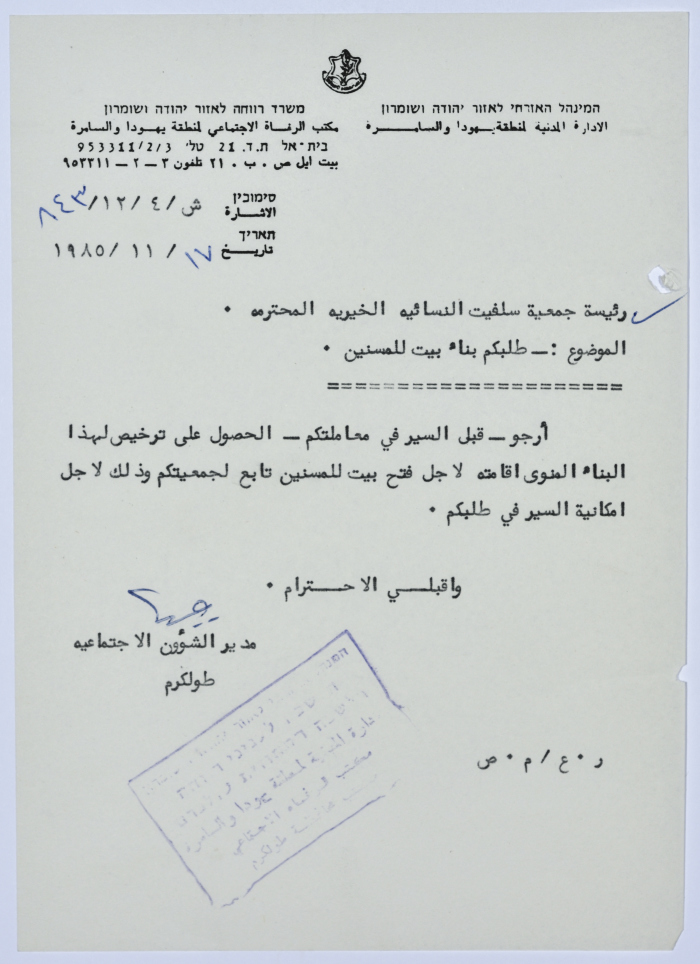 המינהל האזרחי לאזור יהודה ושומרון
الادارة المدنية لمنطقة يهودا والسامــــرة
משרד רווחה לאזור יהודה ושומרון
مكتب الرفاة الاجتماعي لمنطقة يهودا والسامرة
בית-אל ת.ד. 21 טל' 953311/2/3
بيت ايل ص . ب . ٢١ تلفون ٣ – ٢ – ٩٥٣٣١١
סימוכין
الاشارة ش/٤/١٢/٨٤٣
תאריך
تاريـــخ ١٧/ ١١ / ١٩٨٥
رئيسة جمعية سلفيت النسائيه الخيريه المحترمه .
الموضوع : ــ طلبكم بناء بيت للمسنين .
======================
أرجو ــ قبل السير في معاملتكم ــ الحصول على ترخيص لهذا
البناء المنوى اقامته لاجل فتح بيت للمسنين تابع لجمعيتكم وذلك لاجل
امكانية السير في طلبكم .
واقبلـــي الاحـــترام .
مدير الشؤون الاجتماعيه
طولكرم
ر . ع / م . ص
دارة المدنية لمنطقة يهودا والسامرة
مكتب الرفاه الاجتماعي
طولكرم